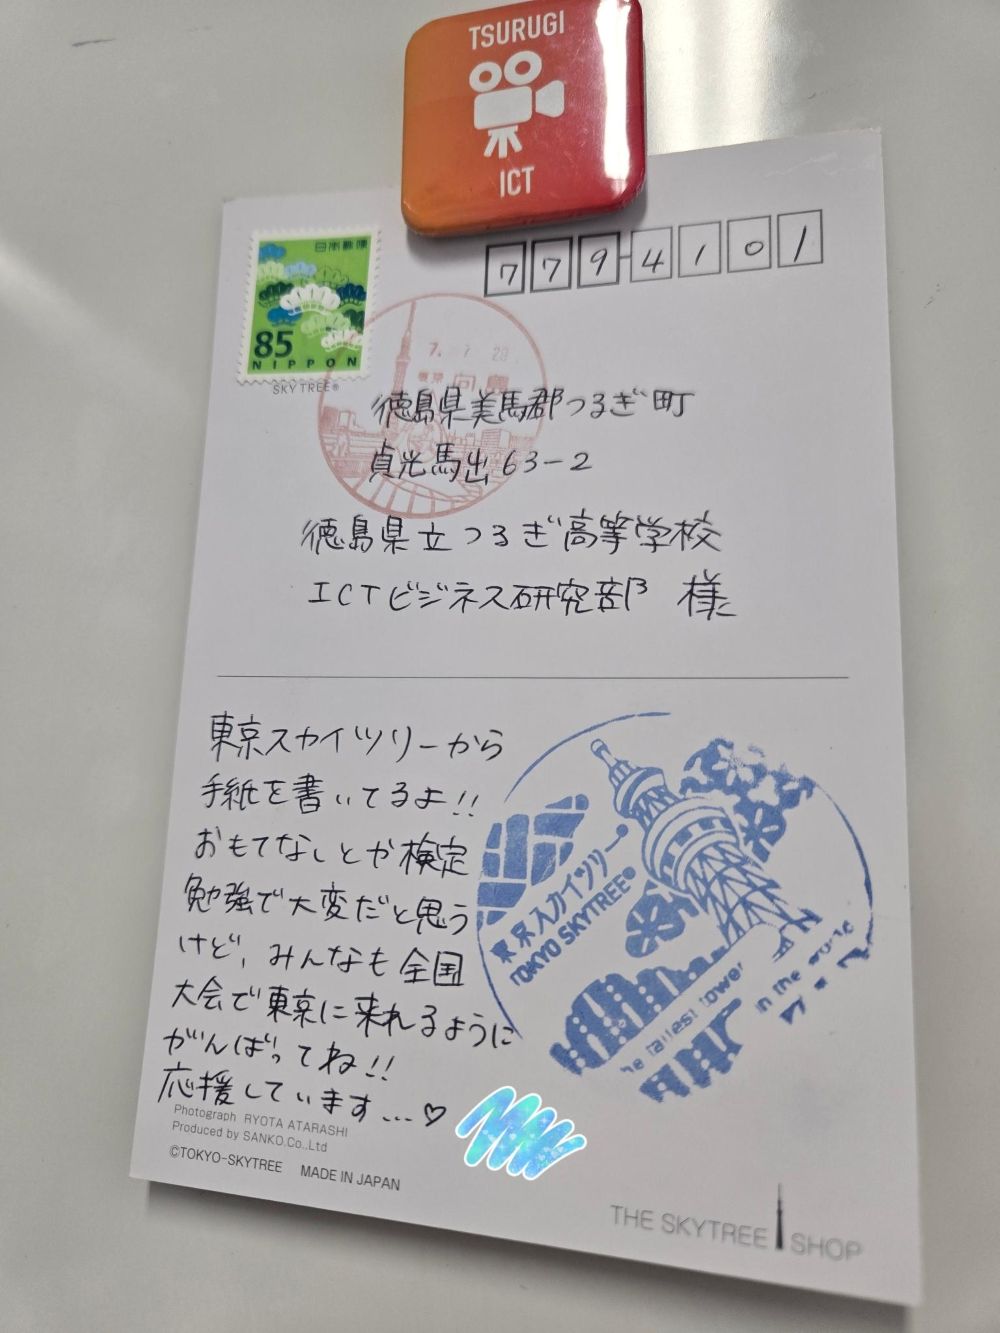 TSURUGI
ICT
日本郵便
85
NIPPON
SKYTREE®
779-4101
7. 7 29
向島
徳島県美馬郡つるぎ町
貞光馬出63-2
徳島県立つるぎ高等学校
ICTビジネス研究部 様
東京スカイツリーから
手紙を書いてるよ!!
おもてなしとか検定
勉強で大変だと思う
けど、みんなも全国
大会で東京に来れるように
がんばってね!!
応援しています…♡
東京スカイツリー®
TOKYO SKYTREE®
tallest tower
in the world
Photograph RYOTA ATARASHI
Produced by SANKO.Co.,Ltd
©TOKYO-SKYTREE MADE IN JAPAN
THE SKYTREE SHOP